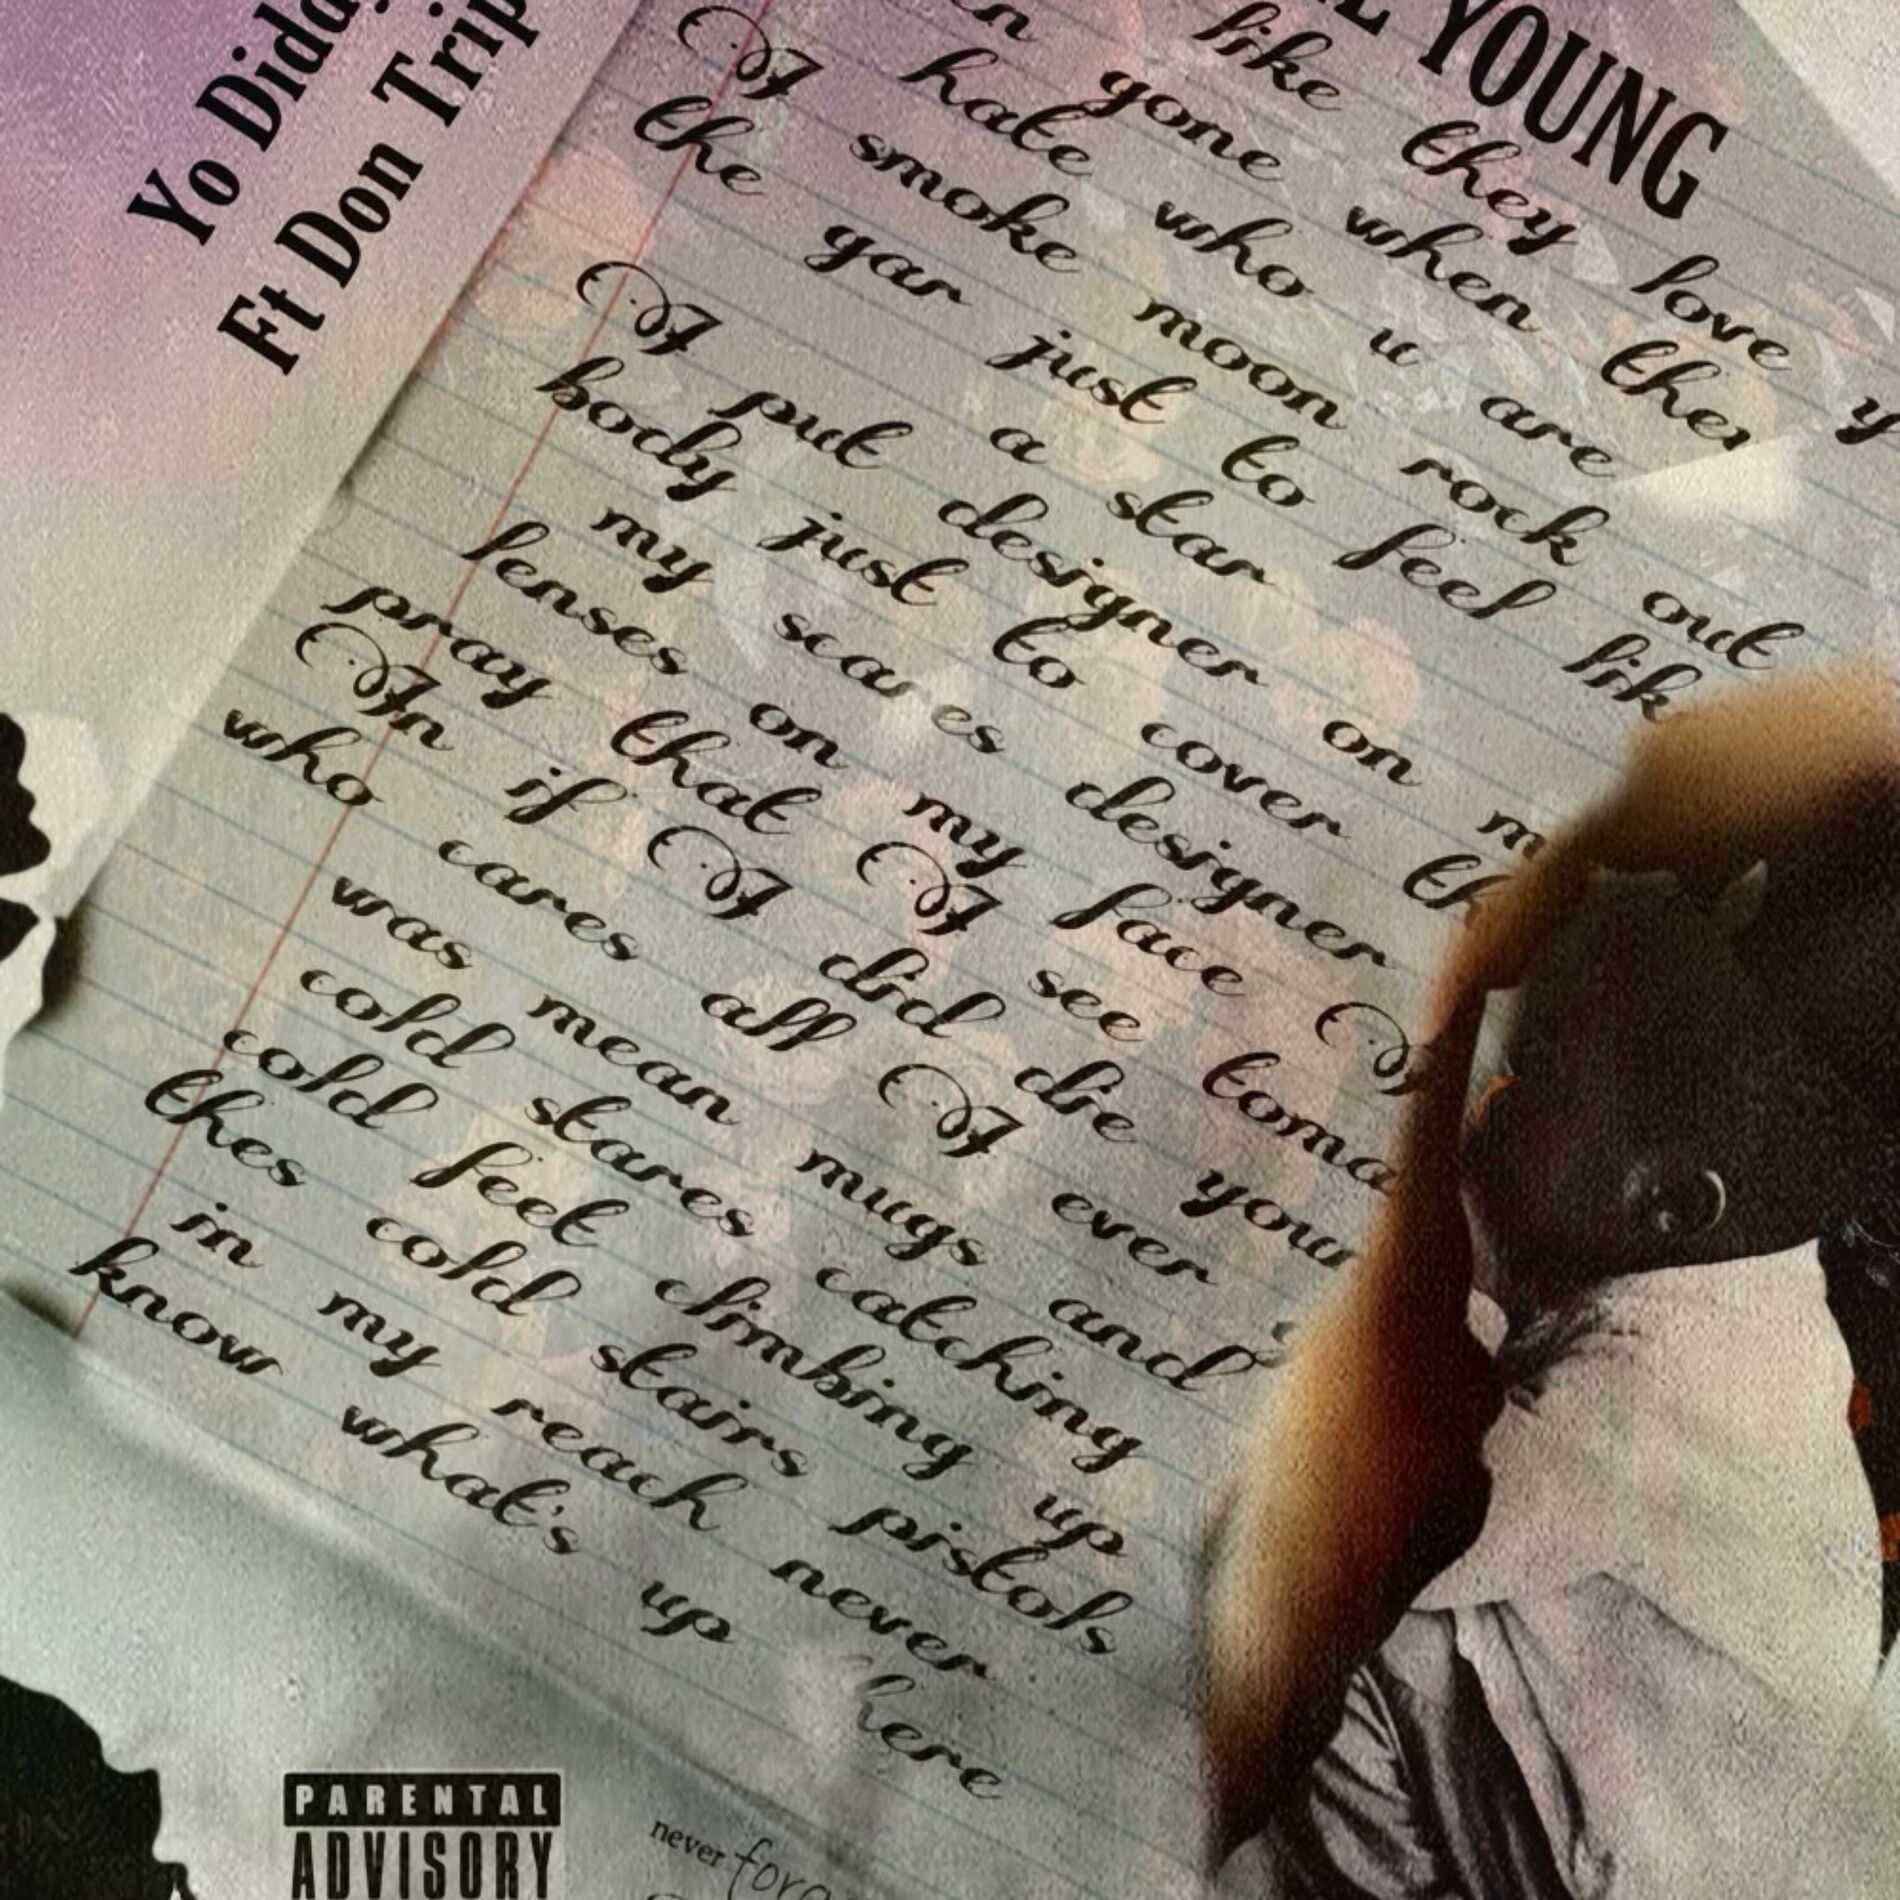 Yo Didd
Ft Don Trip
YOUNG
like they love y
gone when they
hate who u are
I smoke moon rock out
the gar just to feel lik
a star
I put designer on m
body just to cover th
my scares designer
lenses on my face I
pray that I see toma
In if I did die youn
who cares all I ever
was mean mugs and
cold stares catching
cold feet climbing up
thes cold stairs pistols
in my reach never
know what's up here
PARENTAL
ADVISORY
never forg